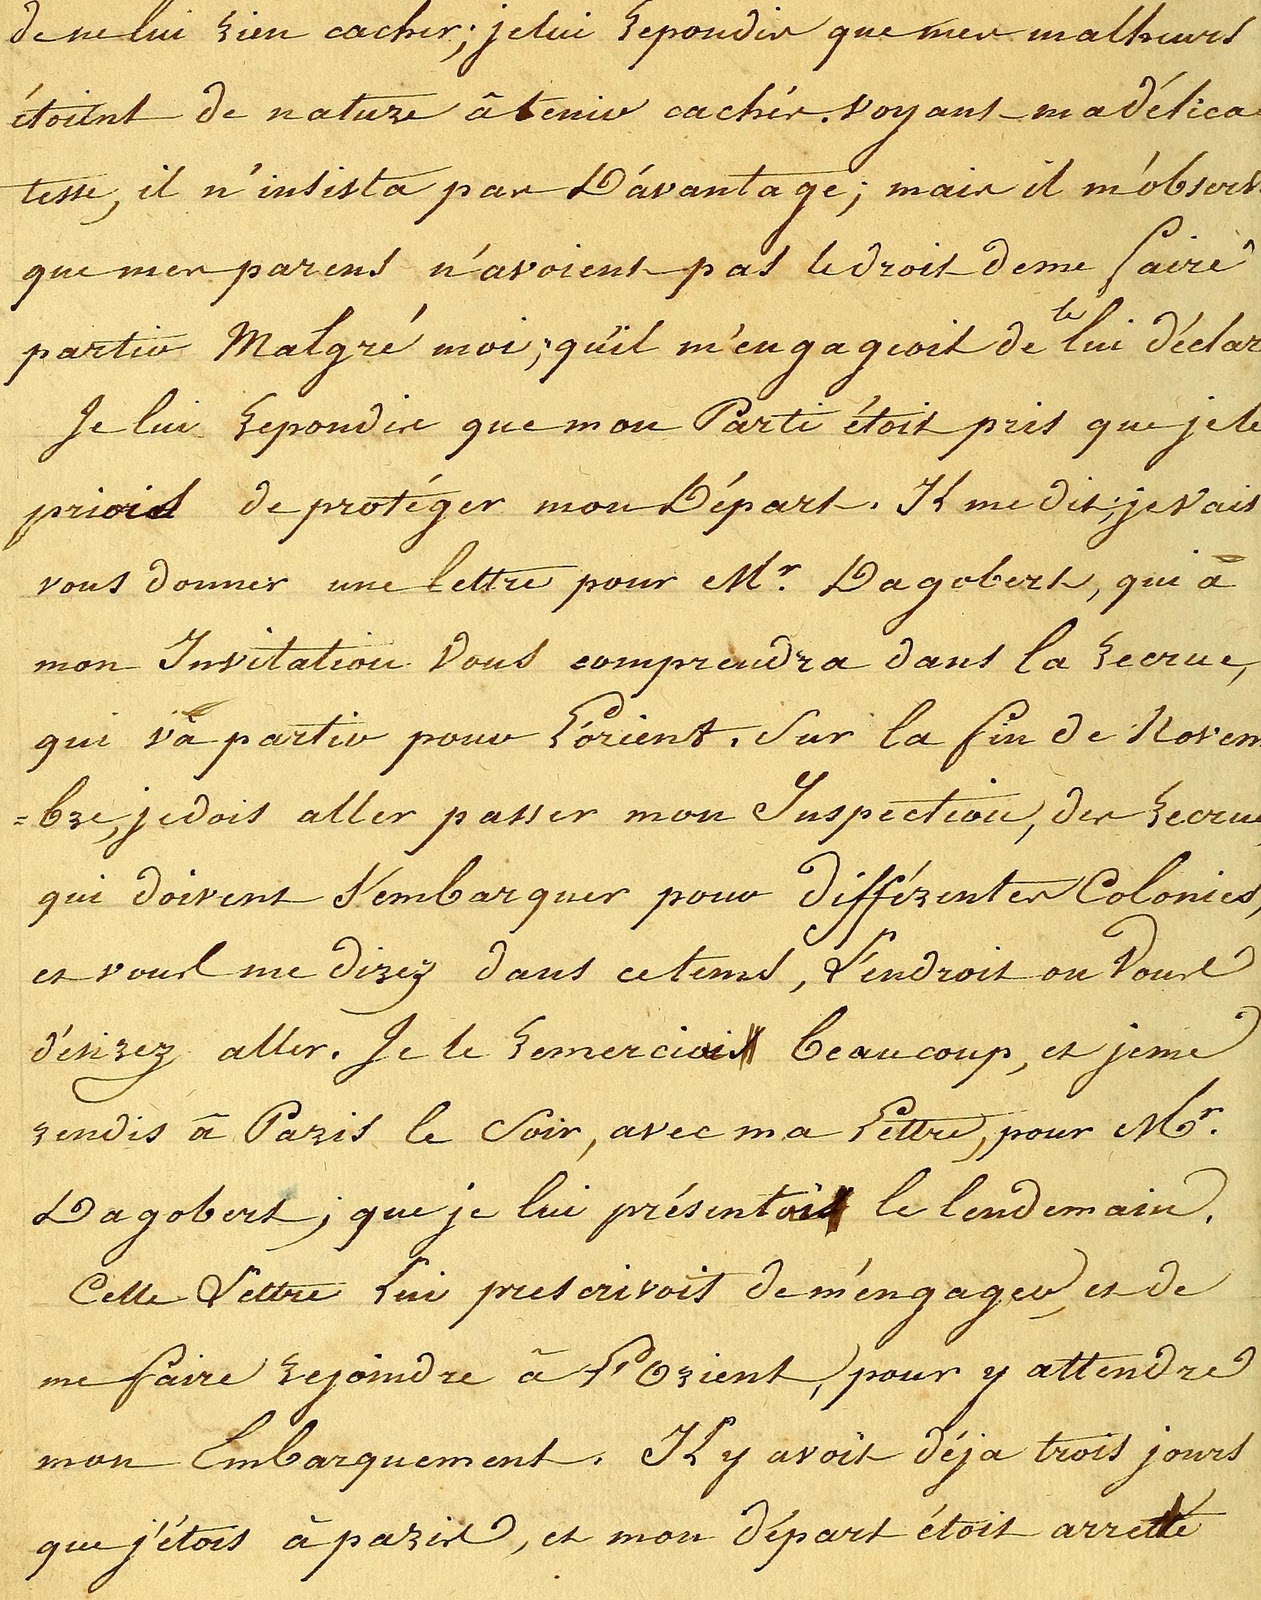 de ne lui rien cacher; je lui repondis que mes malheurs
étoient de nature à tenir cachés. voyant ma délica
tesse, il n'insista pas Dávantage; mais il m'observ
que mes parens n'avoient pas le droit de me faire
partir Malgré moi; qu'il m'engageoit de le lui déclar
Je lui repondis que mon Parti étoit pris que je le
priois de protéger mon Départ. Il me dit; je vais
vous donner une lettre pour Mr. Dagobert, qui à
mon Invitation Vous comprendra dans la recrue,
qui và partir pour L'orient. Sur la fin de Novem
=bre, je dois aller passer mon Inspection, des recrue
qui doivent s'embarquer pour différentes Colonies,
et vous me direz dans ce tems, L'endroit ou Vous
désirez aller. Je le remerciai beaucoup, et je me
rendis à Paris le Soir, avec ma Lettre, pour Mr.
Dagobert; que je lui présentoi le lendemain.
Cette Lettre Lui prescrivoit de m'éngager, et de
me faire rejoindre à L'Orient, pour y attendre
mon Embarquement. Il y avoit déja trois jours
que j'étois à paris, et mon départ étoit arretté